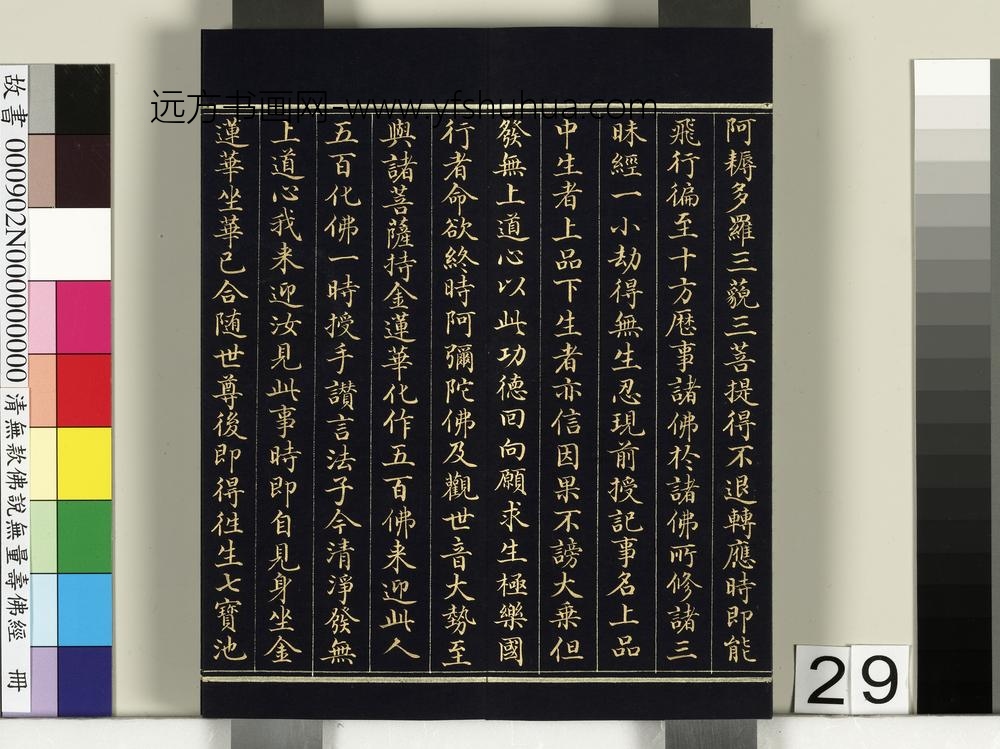 远方书画网-www.yfshuhua.com
阿耨多羅三藐三菩提得不退轉應時即能
飛行徧至十方歷事諸佛於諸佛所修諸三
昧經一小劫得無生忍現前授記事名上品
中生者上品下生者亦信因果不謗大乗但
發無上道心以此功德回向願求生極樂國
行者命欲終時阿彌陀佛及觀世音大勢至
與諸菩薩持金蓮華化作五百佛来迎此人
五百化佛一時授手讃言法子今清淨發無
上道心我来迎汝見此事時即自見身坐金
蓮華坐華已合随世尊後即得徃生七寶池
故書 000902N000000000
清無款佛說無量壽佛經 冊
29